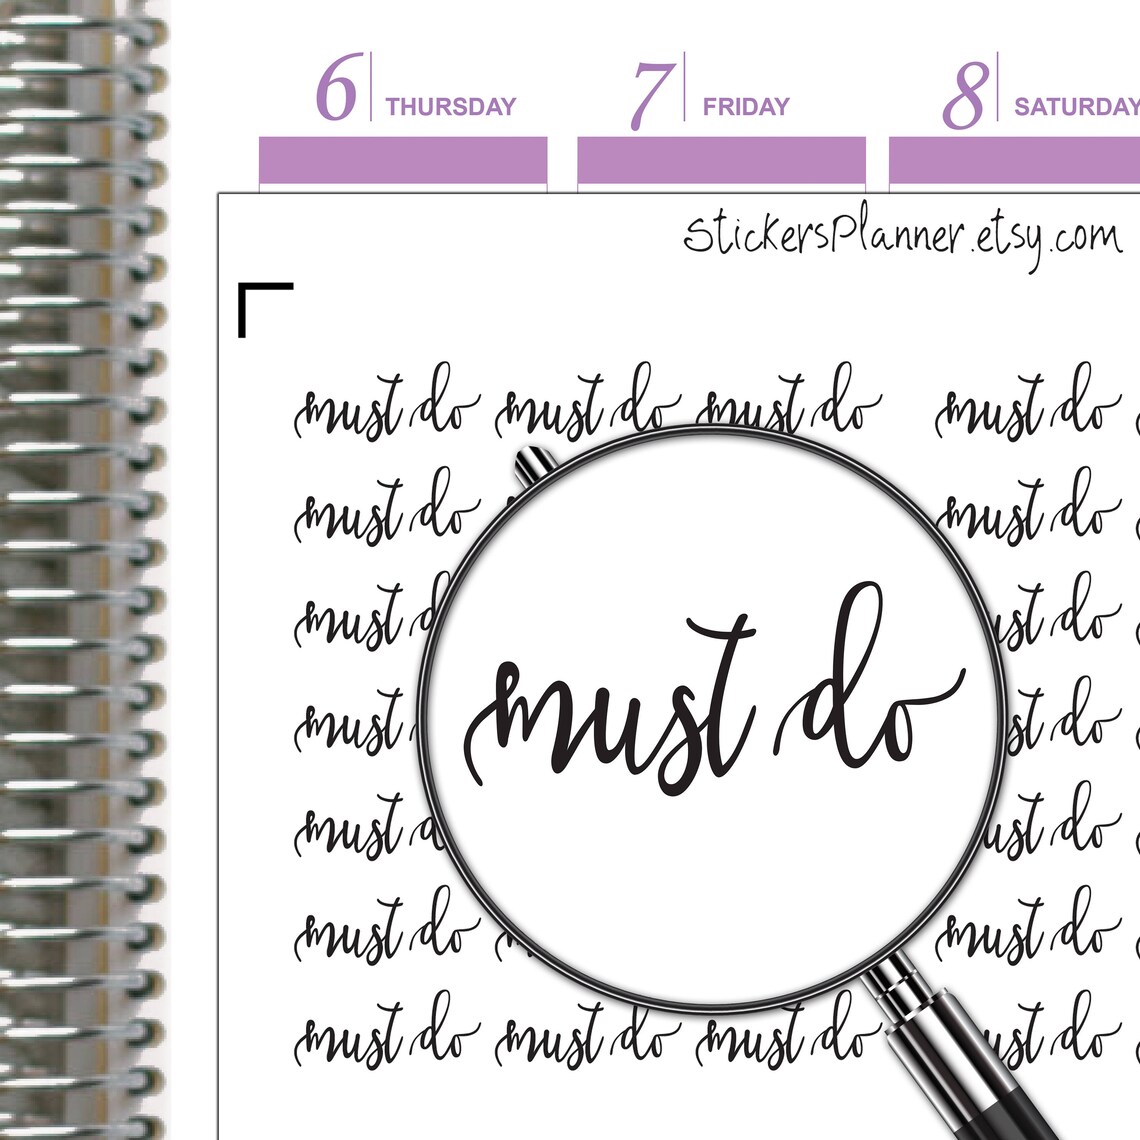 6 THURSDAY 7 FRIDAY 8 SATURDAY
StickersPlanner.etsy.com
must do must do must do must do
must do must do
must do
must do must do
must do
must do
must do
must do must do
must do must do must do do